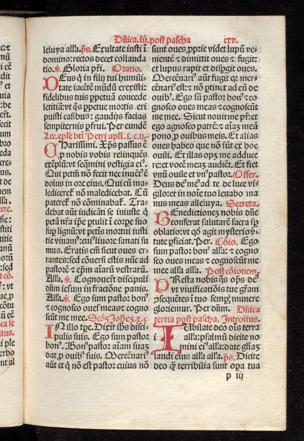 Dñica.iij. post pascha cxv.
leluya alla. ps. Exultate iusti i
domino: rectos decet collauda
tio. Gloria pri. Oratio.
Deus q̃ in filij tui humili-
tate iacẽtẽ mũdũ erexisti:
fidelibus tuis ppetuã concede
letitiã: vt q̃s ppetue mortis eri
puisti casibus: gaudijs facias
sempiternis pfrui. Per eundẽ
Charissimi. Xps passus ẽ
p nobis vobis relinquẽs
exẽplũ: vt seq̃mini vestigia ei⁹.
Qui petm̃ nõ fecit nec inuẽt⁹ ẽ
dolus in ore eius. Qui cũ ma
lediceret̃ nõ maledicebat. Cũ
pateret̃ nõ cõminabat̃. Tra
debat aut iudicãti se iniuste q̃
petã nr̃a ipe ptulit ĩ corpe suo
sup lignũ: vt petis mortui iusti
tie viuam⁹: cui⁹ liuore sanati su
mus. Eratis eñ sicut oues er-
rantes: sed cõuersi estis nũc ad
pastorẽ z epm aĩarũ vestrarũ.
Alla. Cognouerũt discipuli
dñm iesum in fractiõe panis.
Alla. Ego sum pastor bon⁹
z cognosco oues meas: et cogno
scũt me mee.
In illo tpe. Dixit ihs disci-
pulis suis. Ego sum pastor
bon⁹. Bon⁹ pastor aĩam suaz
dat p ouib⁹ suis. Mercẽnari⁹
aut et q̃ nõ est pastor: cuius nõ
sunt oues pprie: videt lupũ ve-
nientẽ z dimittit oues z fugit:
et lupus rapit et dispgit oues.
Mercẽnari⁹ aut fugit qz mer-
cẽnari⁹ est: z nõ ptinet ad eũ de
ouib⁹. Ego sũ pastor bon⁹: co-
gnosco oues meas z cognoscũt
me mee. Sicut nouit me pr̃: et
ego agnosco patrẽ: z aĩaz meã
pono p ouibus meis. Et alias
oues habeo que nõ sũt ex hoc
ouili. Et illas opz me adduce
re: et vocẽ meaz audiẽt. Et fiet
vnũ ouile et vn⁹ pastor. Offer.
Deus de⁹ me⁹ ad te de luce vi
gilo: et in noĩe tuo leuabo ma
nus meas alleluya. Secreta.
Benedictiones nobis dñe
conferat salutarẽ sacra sp
oblatio: vt qd̃ agit mysterio vir-
tute pficiat. Per. Cõio. Ego
sum pastor bon⁹ alla: z cogno
sco oues meas z cognoscũt me
mee alla alla. Post cõionem.
Presta nobis q̃s ops de⁹:
vt viuificatiõis tue gr̃am
cõsequẽtes ĩ tuo semp̃ munere
gloriemur. Per dñm. Dñica
tertia post pascha. Introitus.
Iubilate deo oĩs terra
alla: psalmũ dicite no
mini ei⁹ alla: date gliaz
laudi eius alla alla. ps. Dicite
deo q̃ terribilia sunt opa tua
p iij